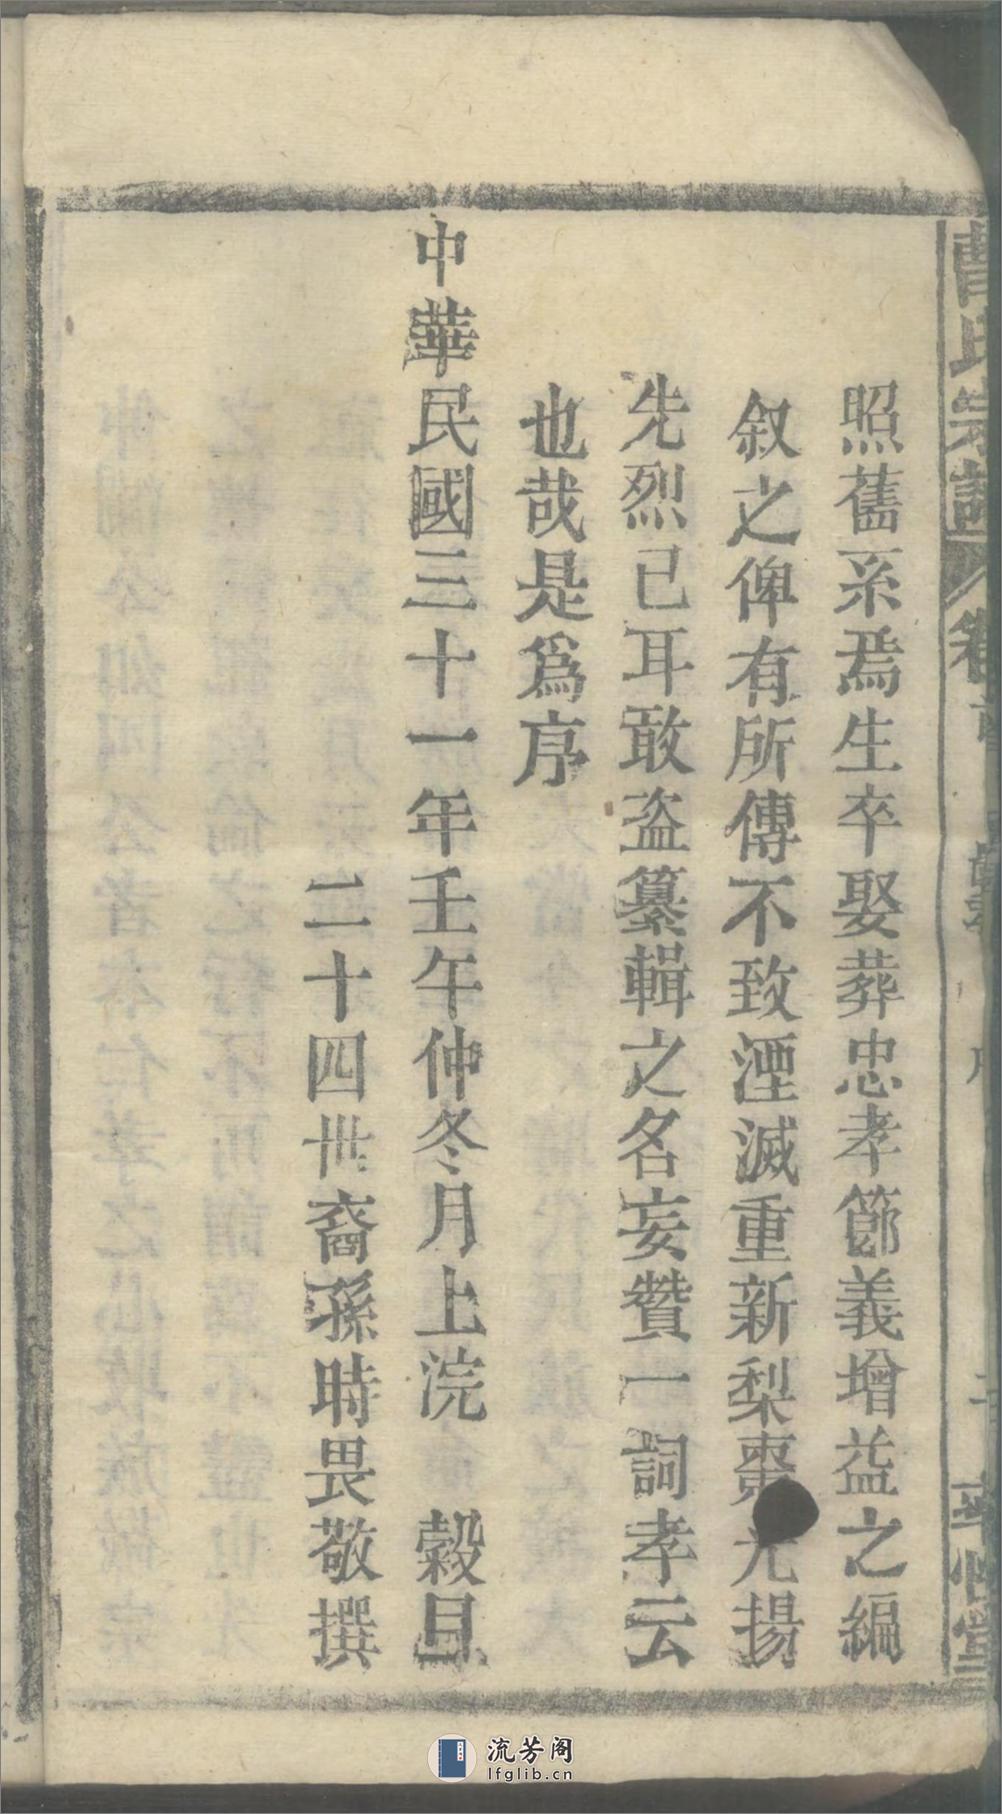 曹氏宗譜 卷首
照舊系焉生卒娶葬忠孝節義增益之編
叙之俾有所傳不致湮滅重新梨棗光揚
先烈已耳敢盗纂輯之名妄贊一詞孝云
也哉是爲序
中華民國三十一年壬午仲冬月上浣 穀旦
二十四世裔孫時畏敬撰
流芳阁
lfglib.cn